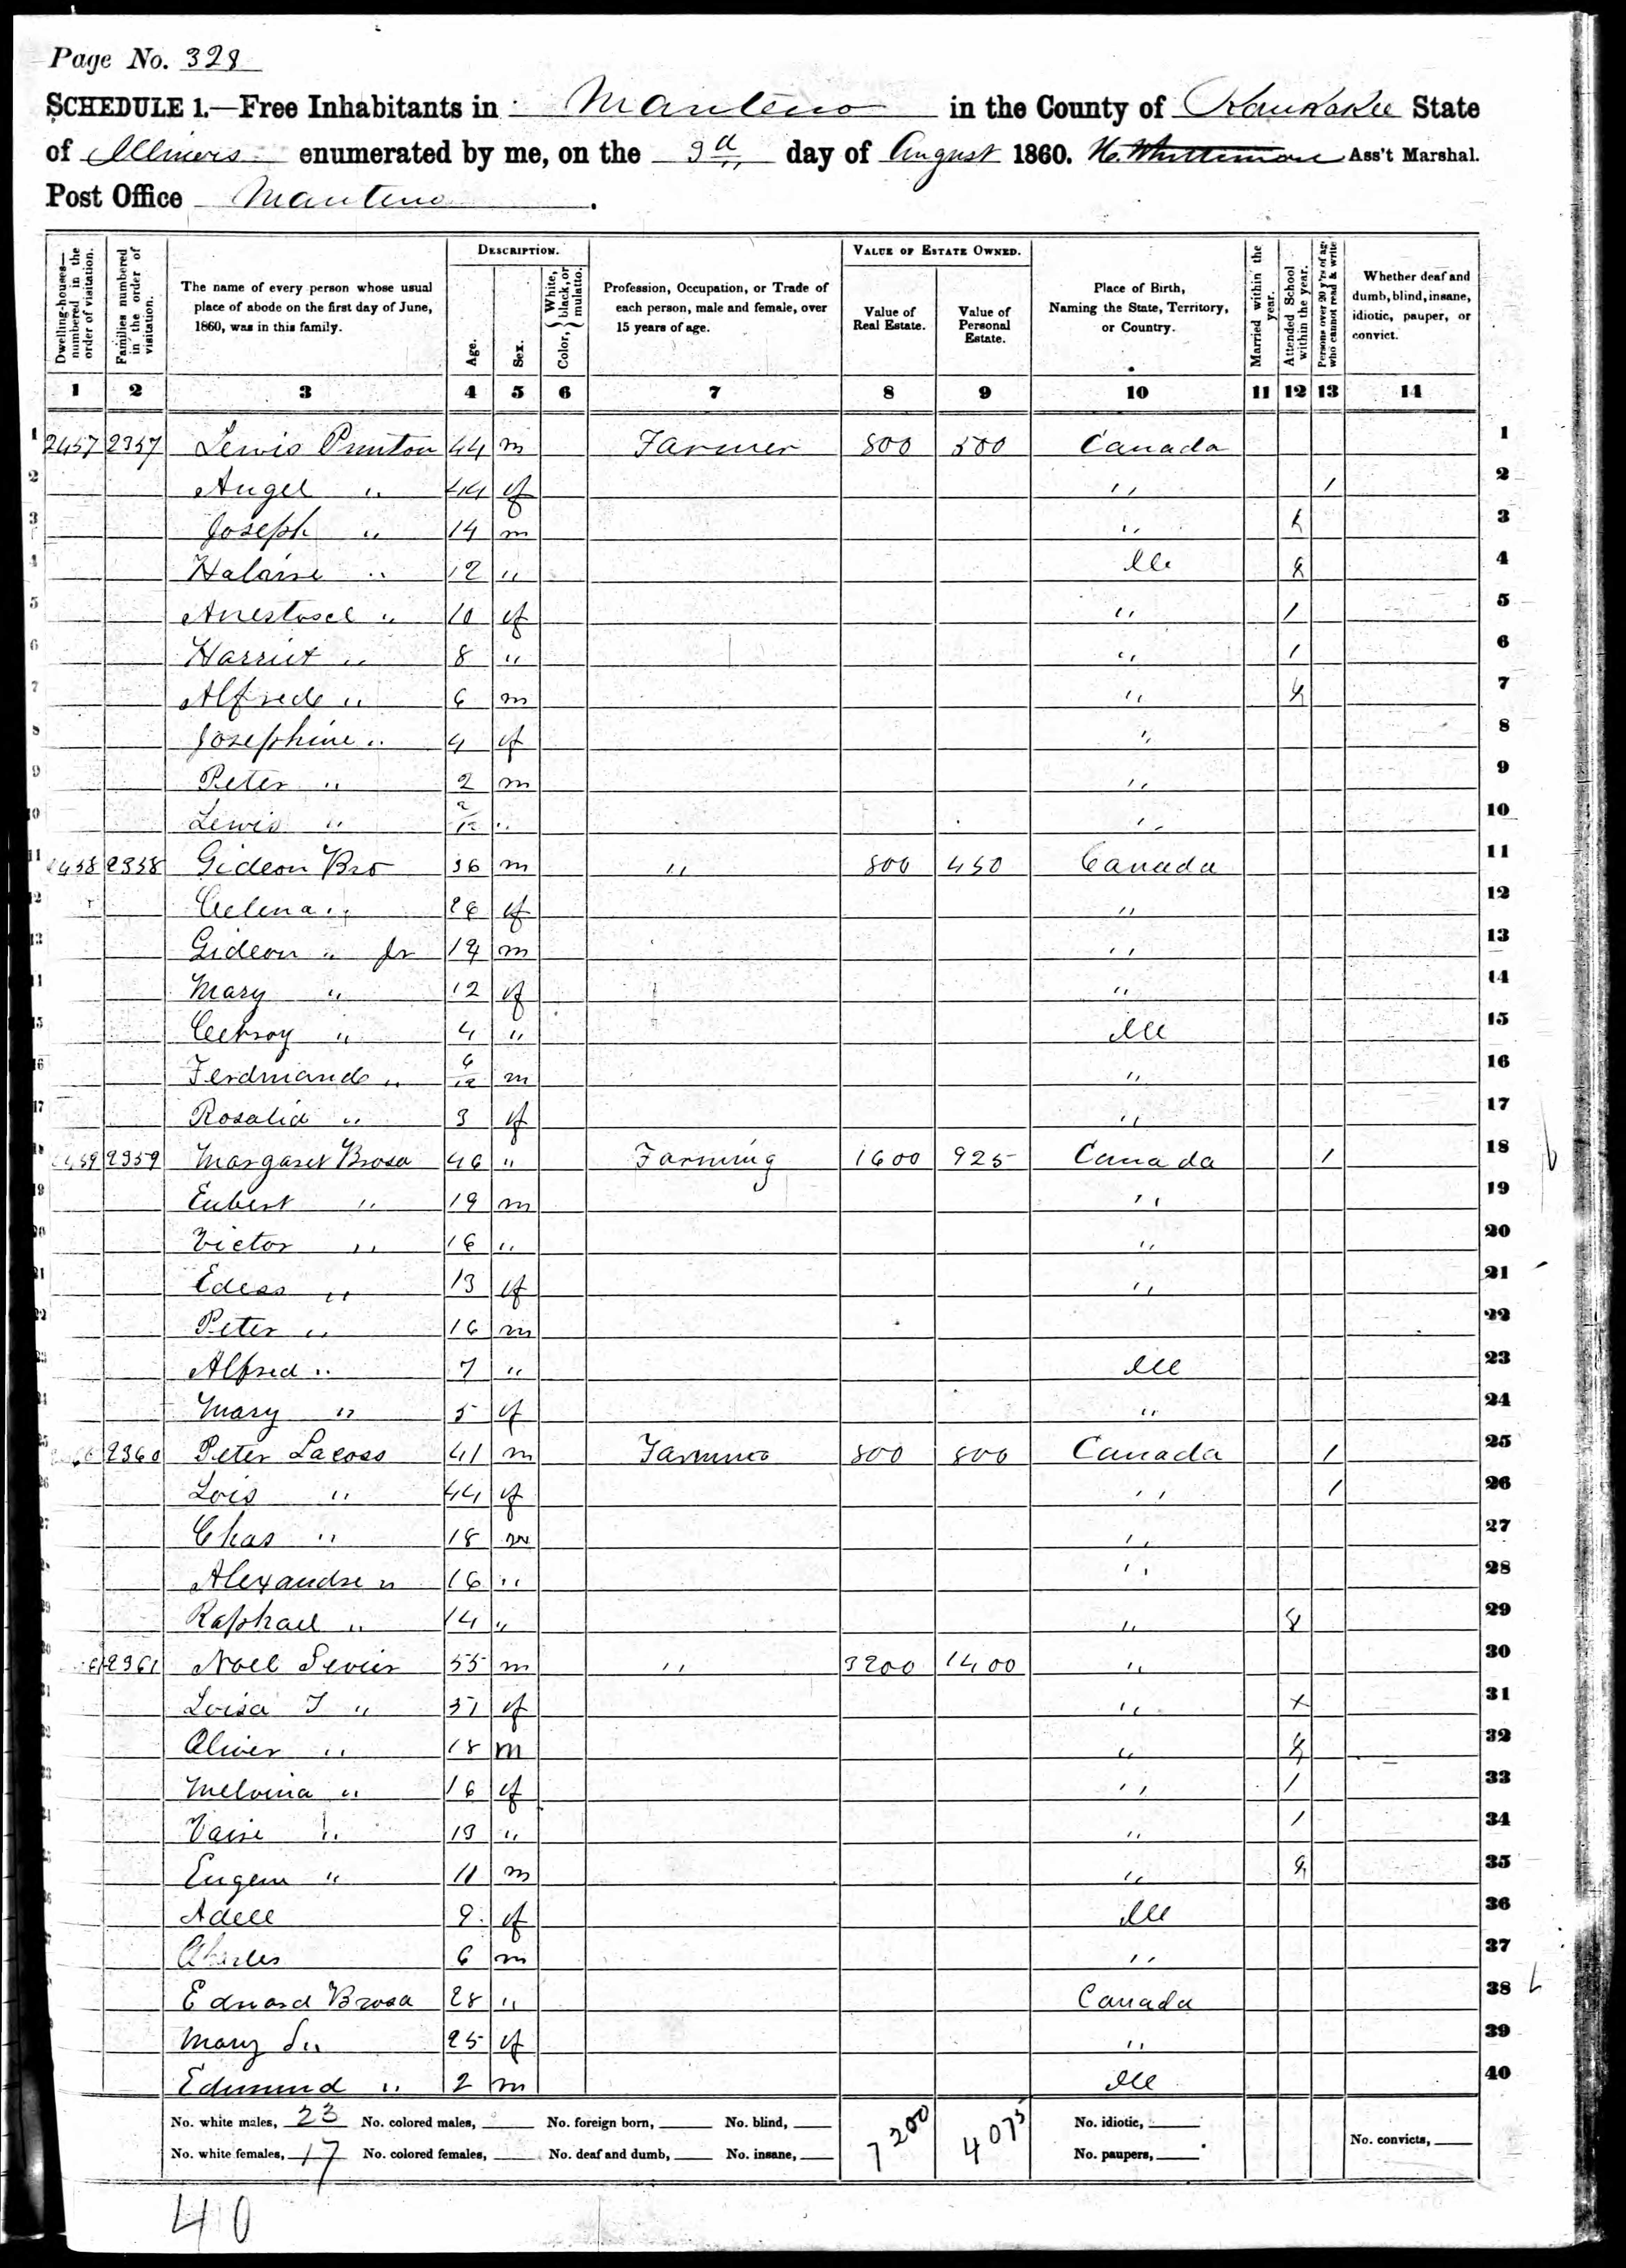 Page No. 328
SCHEDULE 1.—Free Inhabitants in Manteno in the County of Kankakee State
of Illinois enumerated by me, on the 3d day of August 1860. Ass't Marshal.
Post Office Manteno.
Dwelling-houses—numbered in the order of visitation.
Families numbered in the order of visitation.
The name of every person whose usual place of abode on the first day of June, 1860, was in this family.
DESCRIPTION.
Age.
Sex.
Color, White, black, or mulatto.
Profession, Occupation, or Trade of each person, male and female, over 15 years of age.
VALUE OF ESTATE OWNED.
Value of Real Estate.
Value of Personal Estate.
Place of Birth, Naming the State, Territory, or Country.
Married within the year.
Attended School within the year.
Persons over 20 y'rs of age who cannot read & write
Whether deaf and dumb, blind, insane, idiotic, pauper, or convict.
1 2 3 4 5 6 7 8 9 10 11 12 13 14
1 2457 2357 Lewis 44 m Farmer 800 500 Canada 1
2 Angel " 44 f " / 2
3 Joseph " 14 m " 3
4 12 " Ill 4
5 10 f " / 5
6 Harriet " 8 " " / 6
7 Alfred " 6 m " 7
8 Josephine " 4 f " 8
9 Peter " 2 m " 9
10 Lewis " 2/12 " " 10
11 2358 Gideon Bro 36 m " 800 450 Canada 11
12 Celena " 26 f " 12
13 Gideon " Jr 14 m " 13
14 Mary " 12 f " 14
15 4 " Ill 15
16 Ferdinand " 6/12 m " 16
17 Rosalia " 3 f " 17
18 2359 Margaret Brosa 46 " Farming 1600 925 Canada / 18
19 Eubert " 19 m " 19
20 Victor " 16 " " 20
21 Edess " 13 f " 21
22 Peter " 16 m 22
23 Alfred " 7 " Ill 23
24 Mary " 5 f " 24
25 2360 Peter Lacoss 41 m Farming 800 800 Canada / 25
26 Lois " 44 f " / 26
27 Chas " 18 m " 27
28 Alexandre " 16 " " 28
29 Raphael " 14 " " 29
30 2361 Noel 55 m " 3200 1400 " 30
31 Loisa " 37 f " x 31
32 Oliver " 18 m " 32
33 Melvina " 16 f " / 33
34 13 " " / 34
35 Eugene " 11 m " 35
36 Adell 9 f Ill 36
37 Charles 6 m " 37
38 Edward Brosa 28 " Canada 38
39 Mary " 25 f " 39
40 Edmund " 2 m Ill 40
No. white males, 23 No. colored males, No. foreign born, No. blind, 7200 4075 No. idiotic,
No. white females, 17 No. colored females, No. deaf and dumb, No. insane, No. paupers, No. convicts,
40